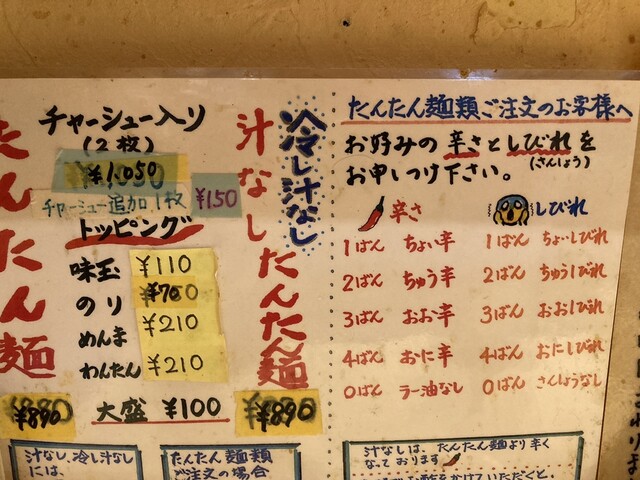 たんたん麺
¥890
チャーシュー入り
(2枚)
¥1,050
チャーシュー追加1枚 ¥150
トッピング
味玉 ¥110
のり
めんま ¥210
わんたん ¥210
大盛 ¥100
冷し汁なし
汁なしたんたん麺
¥890
汁なし、冷し汁なし
には、
たんたん麺類
ご注文の場合
たんたん麺類ご注文のお客様へ
お好みの辛さとしびれを
(さんしょう)
お申しつけ下さい。
辛さ
1ばん ちょい辛
2ばん ちゅう辛
3ばん おお辛
4ばん おに辛
0ばん ラー油なし
しびれ
1ばん ちょいしびれ
2ばん ちゅうしびれ
3ばん おおしびれ
4ばん おにしびれ
0ばん さんしょうなし
汁なしは、たんたん麺より辛く
なっております